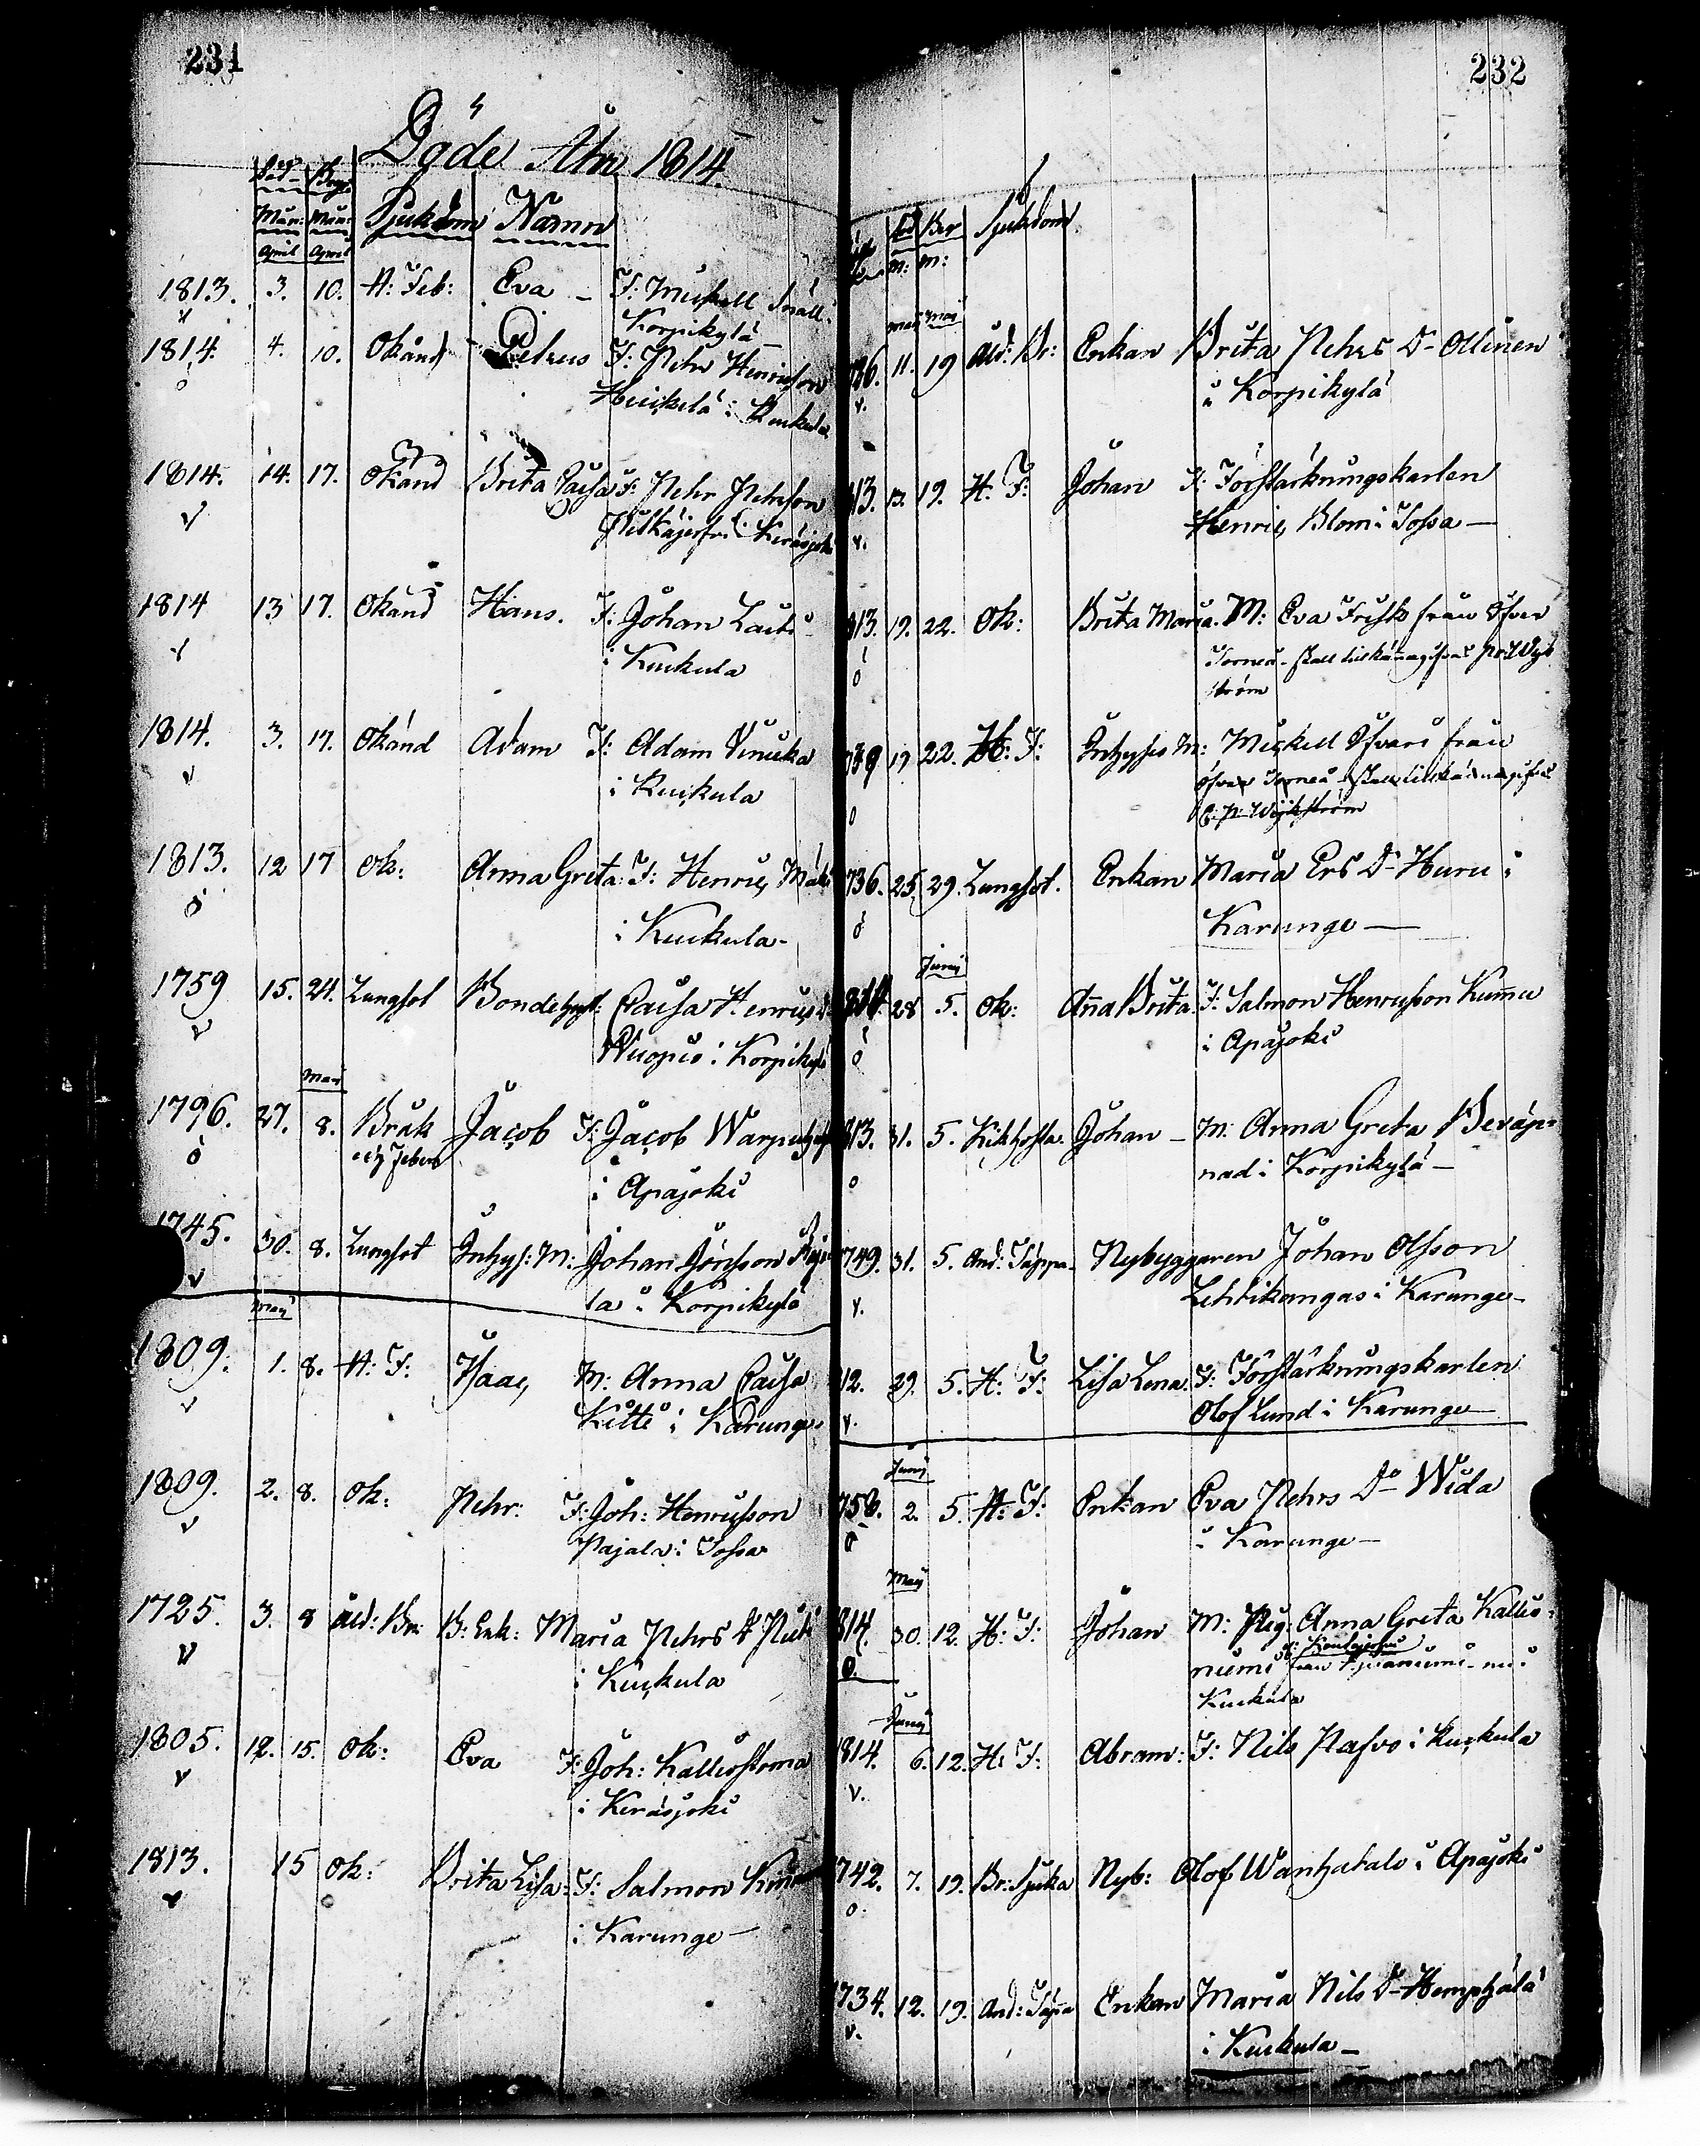 231
Döde Åhr 1814.
Död Begr
Mån: Mån: Sjukdom Namn
April April
1813. 3. 10. H: Feb: Eva – F: Mickell Snäll
v Korpikylä
1814. 4. 10. Okänd Petrus F: Pehr Henricsson
o Heickelä i Kuckula
1814. 14. 17. Okänd Brita Caisa F: Pehr Pehrsson
v i Keräsjoki
1814 13 17. Okänd Hans. F: Johan Laiti
v i Kuckula
1814. 3. 17. Okänd Adam F: Adam Vinicka
v i Kuckula
1813. 12 17 Ok: Anna Greta F: Henric Mäki
o i Kuckula –
1759 15. 24. Lungsot Bondehust: Caisa Henrics D:
v Wuopio i Korpikylä
Maij
1796. 27. 8. Bråk Jacob F: Jacob
o och feber i Apajoki
1745. 30. 8. Lungsot Inhys: M: Johan Jönsson
v la i Korpikylä
Maij
1809. 1. 8. H: F: Isaac, M: Anna Caisa
v Kitti i Karunge
1809. 2. 8. Ok: Pehr: F: Joh: Henricsson
v Pajala i Tossa
1725. 3. 8 åld: Br: B: Enk: Maria Pehrs D:
v i Kuckula
1805. 12. 15. Ok: Eva F: Joh: Kalliostroma
v i Keräsjoki
1813. 15 Ok: Brita Lisa: F: Salmon
v i Karunge –
232
Död Ber Sjukdom
m: m:
Maij Maij
736. 11. 19 åld: Br: Enkan Brita Pehrs D– Ollinen
v. i Korpikylä
813. 13. 19. H. F: Johan F: Förstärkningskarlen
v. Henric Blom i Tossa –
813. 19. 22. Ok: Brita Maria. M: Eva Frisk från Öfver
o Torneå – skall tillkännagifvas
ström
789 19 22. H: F: Inhyses M: Mickell från
o Öfver Torneå – skall tillkännagifvas
C: P: Wijkström
736. 25. 29. Lungsot. Enkan Maria Ers D– Huru i
o Karunge –
Junij
814. 28 5. Ok: Anna Brita. F: Salmon Henricsson Kummu
o i Apajoki
813. 31. 5. Kikhosta. Johan – M: Anna Greta Beräp=
o nad i Korpikylä –
749. 31. 5. And: Täppa. Nybyggaren Johan Olsson
v. Lehtikangas i Karunge –
812. 29. 5. H: F: Lisa Lena. F: Förstärkningskarlen
v. Olof Lund i Karunge
Junij
758. 2. 5. H: F: Enkan Eva Pehrs D– Wida
o i Karunge –
Maij
814. 30. 12. H: F: Johan M: Pig: Anna Greta Kallio=
o. niemi från nu i
Kuckula
Junij
1814. 6. 12. H: F: Abram: F: Nils Rafvo i Kuckula
v.
1742. 7. 19. Br: Sjuka Nyb: Olof Wanhatalo i Apajoki
o.
1734. 12. 19. And: Täppa Enkan Maria Nils D–
v. i Kuckula –